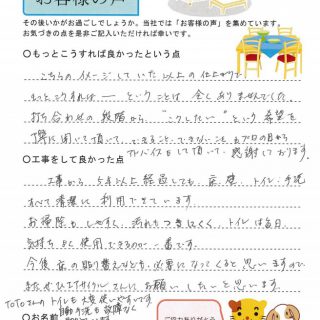 お客様の声
その後いかがお過ごしでしょうか。当社では「お客様の声」を集めています。
お気づきの点を是非ご記入いただければ幸いです。
○もっとこうすれば良かったという点
こちらのイメージしていた以上の仕上がりで
もっとこうすれば―ということは全くありませんでした
打ち合わせの段階から"こうしたい"という希望を
丁寧に聞いて頂いて、できること できないこともプロの目から
アドバイスして頂いて、感謝しております。
○工事をして良かった点
工事から5年以上経過しても床、壁、トイレ・手洗
すべて綺麗に利用できています
お掃除もしやすく、汚れもつきにくく、トイレは毎日
気持ち良く使用できるのが一番です。
今後 床の貼り替えなども必要になってくると思いますので
またぜひエイタイルさんにお願いしたいと思います。
TOTOさんのトイレも大変使いやすいです
自動水洗も故障なく
○お名前
ご協力ありがとう